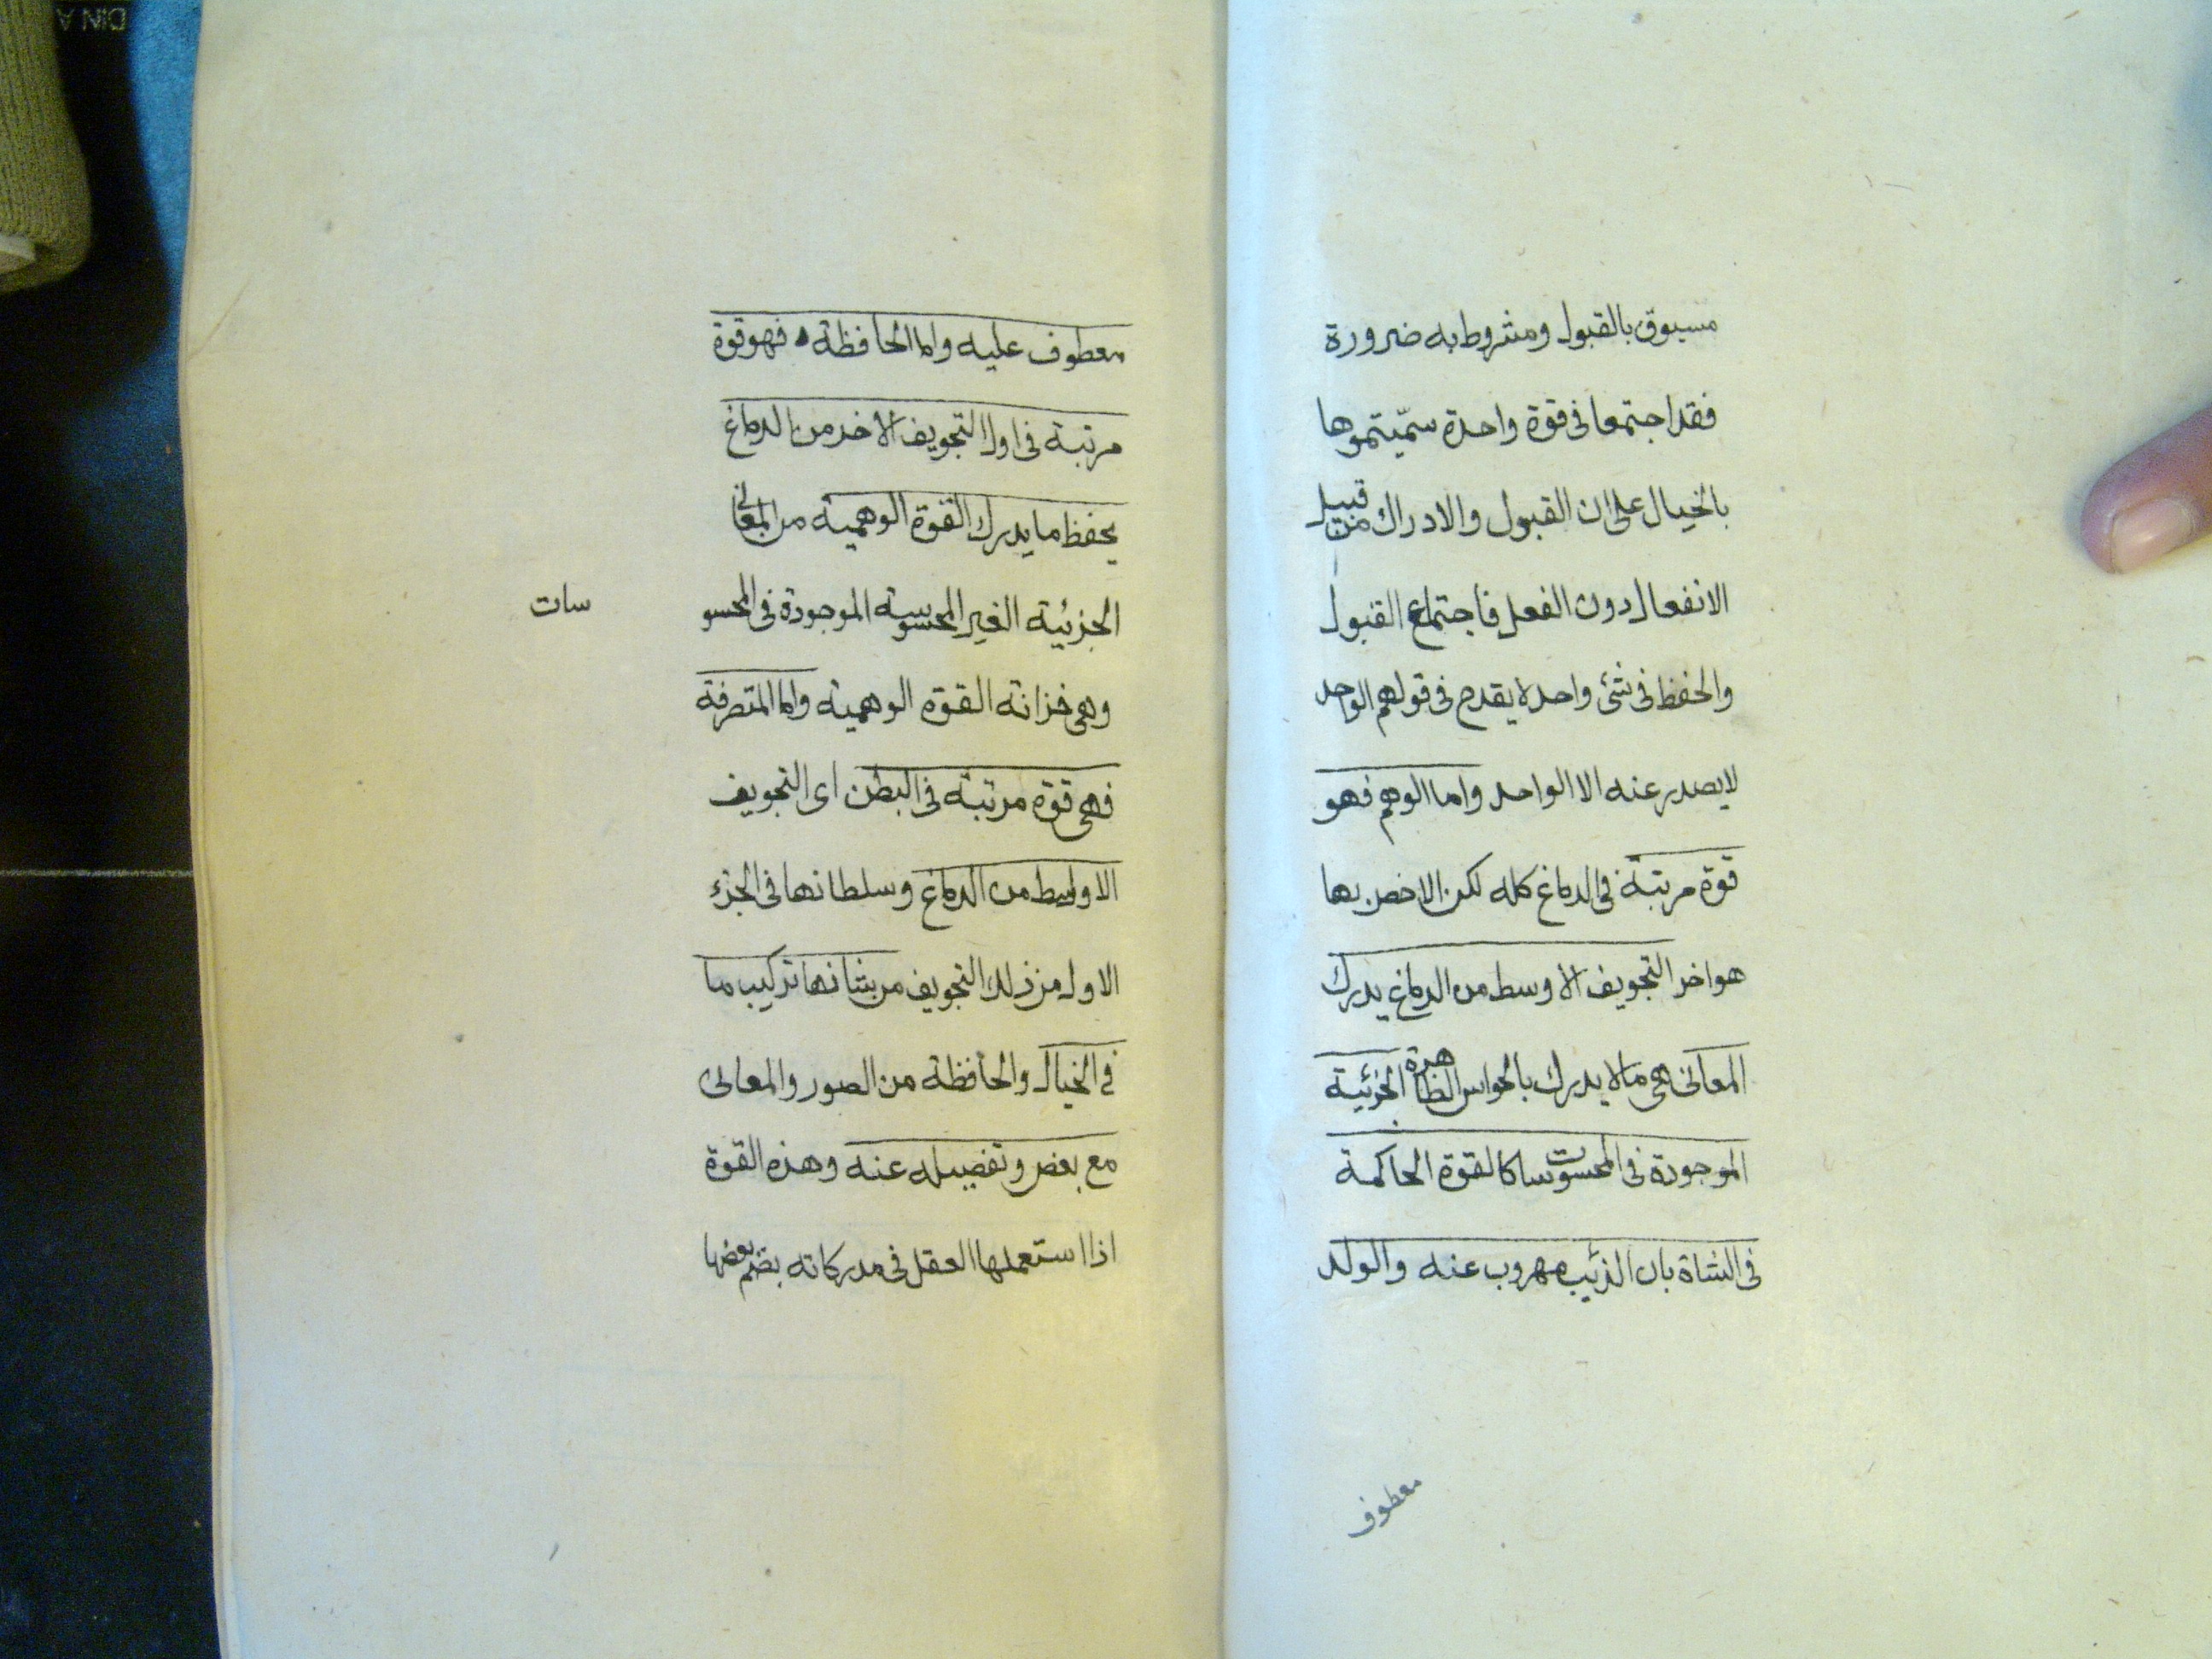 مسبوق بالقبول ومشروط به ضرورة
فقد اجتمعا فى قوة واحدة سمّيتموها
بالخيال على ان القبول والادراك من قبيل
الانفعال دون الفعل فاجتماع القبول
والحفظ فى شئ واحد لا يقدح فى قولهم الواحد
لا يصدر عنه الا الواحد واما الوهم فهو
قوة مرتبة فى الدماغ كله لكن الاخص بها
هو اخر التجويف الاوسط من الدماغ يدرك
المعانى هى ما لا يدرك بالحواس الظاهرة الجزئية
الموجودة فى المحسوسات كالقوة الحاكمة
فى الشاة بان الذئب مهروب عنه والولد
معطوف
معطوف عليه واما الحافظة فهو قوة
مرتبة فى اول التجويف الاخر من الدماغ
يحفظ ما يدرك القوة الوهمية من المعانى
الجزئية الغير المحسوسة الموجودة فى المحسو سات
وهى خزانة القوة الوهمية واما المتصرفة
فهى قوة مرتبة فى البطن اى التجويف
الاوسط من الدماغ وسلطانها فى الجزء
الاول من ذلك التجويف من شانها تركيب ما
فى الخيال والحافظة من الصور والمعانى
مع بعض وتفصيله عنه وهذه القوة
اذا استعملها العقل فى مدركاته بضم بعضها